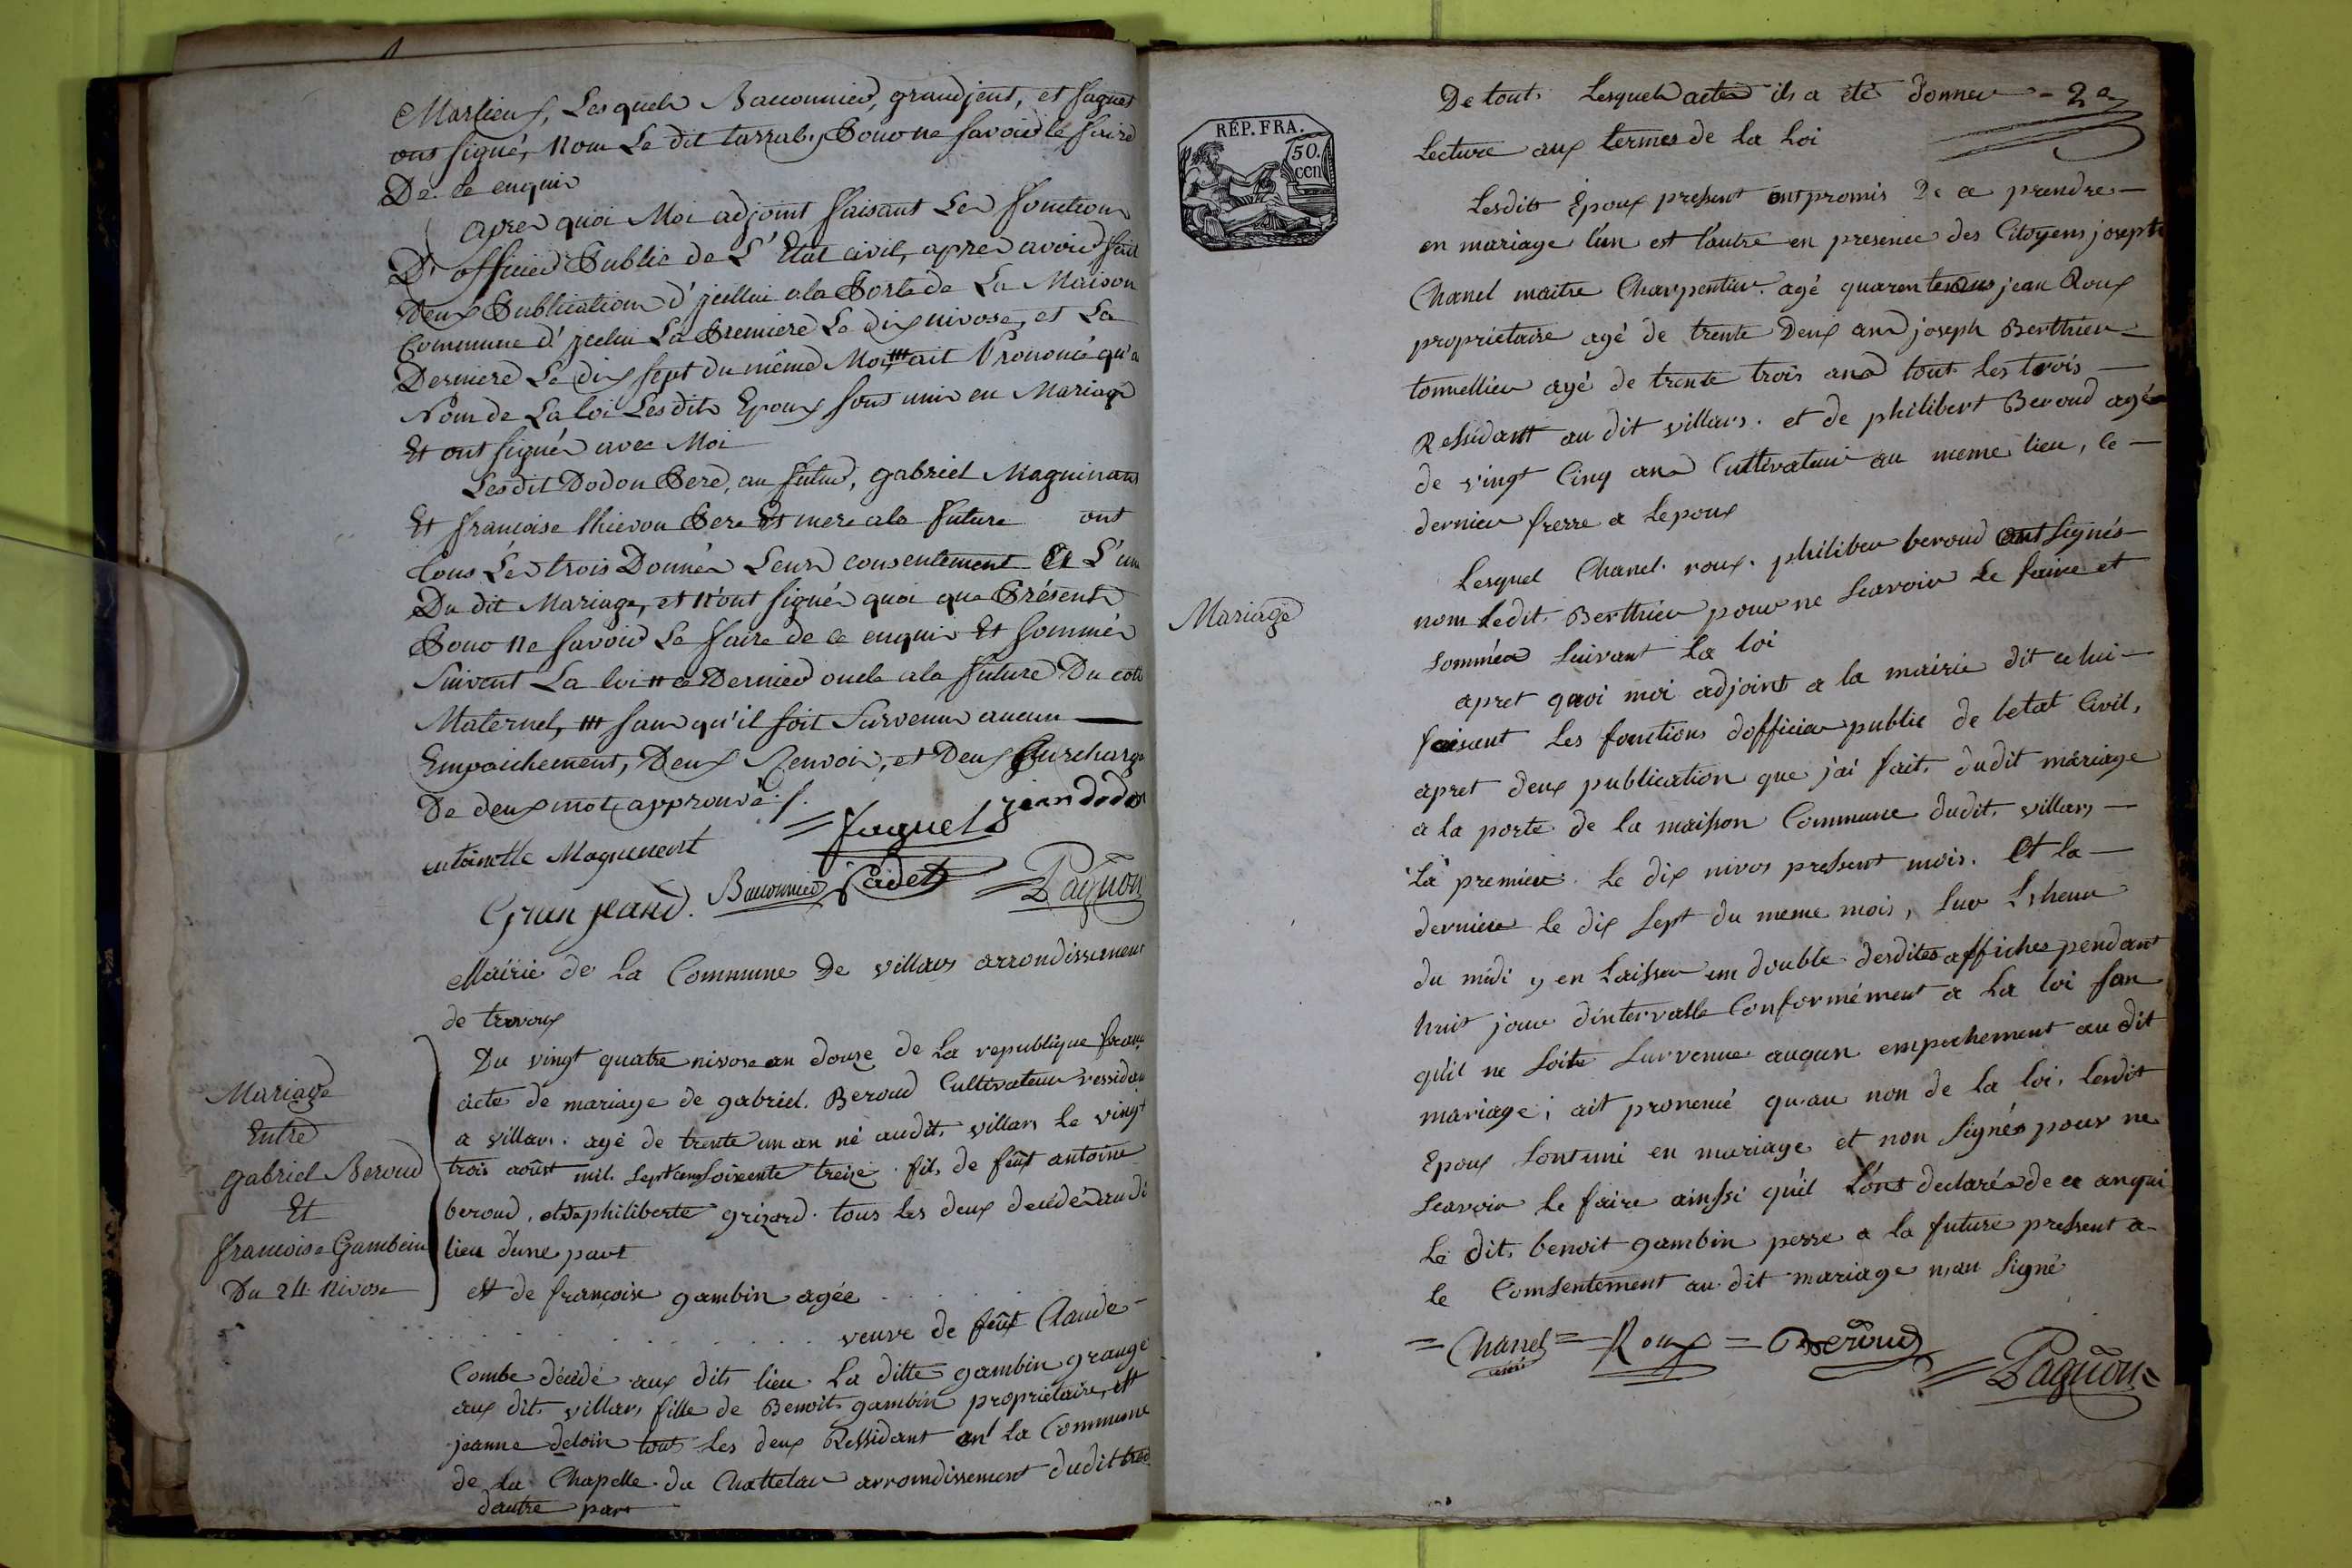 Marlieux, Lesquels Bauonnier, grandjent, et faguet
ont signé, Nom Le dit tarrab. Pour ne Savoir le faire
De ce enquis
apres quoi Moi adjoint faisant Les fonctions
D'officier Public de L'Etat civil, apres avoir fait
Deux Publications d'jcellui a la Porte de La Maison
Commune d'jcelui La Premiere Le dix nivose, et La
Derniere Le dix sept du même Mois, ait Prononcé qu'a
Nom de La loi Lesdits Epoux sont unis en Mariage
Et ont signés avec Moi
Lesdit Dodon Pere, au futur, gabriel Maguinant
Et francoise thievon Pere Et mere a la future ont
tous Les trois Donnés Leurs consentement a L'un
Du dit Mariage, et n'ont signés quoi que Présents
Pour ne Savoir Le faire de ce enquis Et sommés
Suivent La loi ce Dernier oncle a la future Du coté
Maternel, sans qu'il soit Survenus aucun
Empaichement, Deux Renvois, et Deux Surcharge
De deux mots approuvé ./.
jean dodon
= faguet
antoinette Maguenent
Gran jeand. Bauonnier Cadet = Paguon
Mairie de La Commune De villars arrondissement
de trevoux
Mariage
Entre
gabriel Beroud
Et
francoise Gambein
Du 24 Nivose
Du vingt quatre nivose an douze de La republique franç
acte de mariage de gabriel. Beroud Cultivateur ressidan
a villars. agé de trente un an né audit. villars le vingt
trois août mil. sept cens soixente treize. fils de feût antoine
beroud, et de philiberte grizard. tous les deux decédés audi
lieu d'une part
est de françoise gambin agée
veuve de feût Claude
Combe décédé aux dits lieu. La ditte gambin grange
aux dit. villars fille de Benoit gambin proprietaire, est
jeanne deloin tout les deux Ressidant en La Commune
de La Chapelle du Chattelar arrondissement dudit trev
dautre part
RÉP. FRA.
50.
cen
Mariage
De tout. Lesquels actes ils a été donner = 2e
Lecture aux termes de La Loi
Lesdits Epoux pressent ont promis De ce prendre
en mariage l'un est l'autre en presence des Citoyens joseph
Chanel maitre Charpentier. agé quarente ans jean Roux
proprietaire agé de trente Deux ans joseph Berthier
tonnellier agé de trente trois ans tout les trois
Ressidant au dit villars. et de philibert Beroud agé
de vingt Cinq ans Cultivateur au meme lieu, le
dernier frerre a Lepoux
Lesquel Chanel. roux. philiber beroud ont signés
nom Ledit. Berthier pour ne scavoir Le faire et
sommés suivant La loi
apret quoi moi adjoint a la mairie dit ce lui
faisant Les fonctions dofficier public de letat Civil,
apret deux publication que j'ai fait, dudit mariage
a la porte de la maisson Commune dudit. villars
La premiere Le dix nivos pressent mois. Et la
derniere le dix sept du meme mois, sur Lheur
du midi y en Laisser un double desdites affiches pendant
huit jour d'intervalle Conformément a La loi san
qu'il ne soite survenue augun empechement au dit
mariage; ait prononcé qu'au non de La loi. lesdit
Epoux sont uni en mariage et non signés pour ne
scavoir Le faire ainssi qu'il Lont declarés de ce anqui
Le dit. benoit gambin perre a la future pressent a
le Comsentement au dit mariage n'an signé
= Chanel = Roux = Beroud
= Paguon